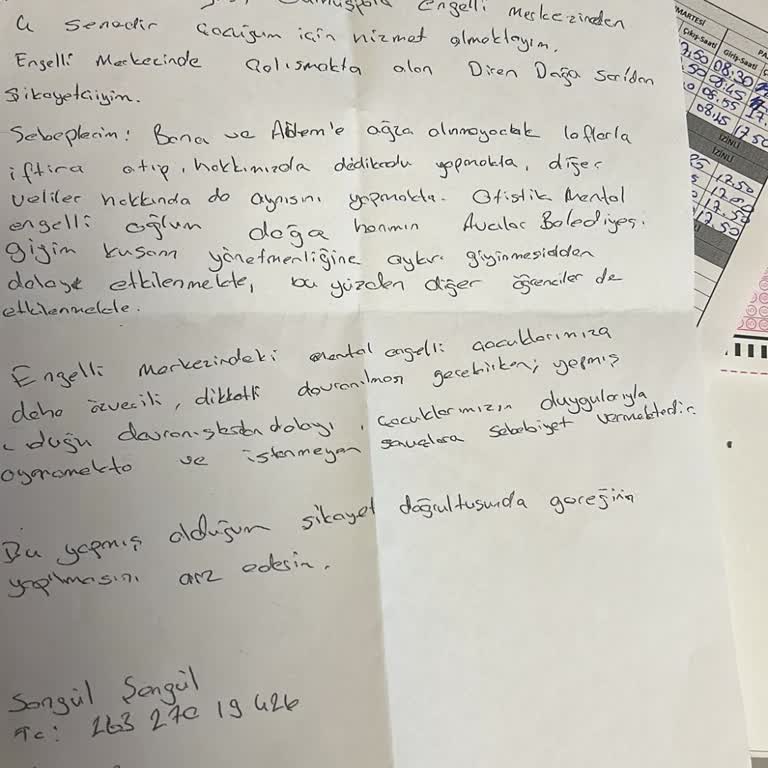 Gümüşpala Engelli Merkezinden
4 senedir Çocuğum için hizmet almaktayım.
Engelli Merkezinde Çalışmakta olan Diren Doğa Sarı'dan
Şikayetçiyim.
Sebeplerim: Bana ve Adem'e ağza alınmayacak laflarla
iftira atıp, hakkımızda dedikodu yapmakta, diğer
veliler hakkında da aynısını yapmakta. Otistik Mental
engelli oğlum doğa hanımın Avcılar Belediyesi
giyim kuşam yönetmenliğine aykırı giyinmesinden
dolayı etkilenmekte, bu yüzden diğer öğrenciler de
etkilenmekte.
Engelli Merkezindeki mental engelli çocuklarımıza
daha özverili, dikkatli davranılması gerekirken; yapmış
olduğu davranışlardan dolayı, çocuklarımızın duygularıyla
oynamakta ve istenmeyen sonuçlara sebebiyet vermektedir.
Bu yapmış olduğum şikayet doğrultusunda gereğinin
yapılmasını arz ederim.
Songül Şengül
Tc: 263 270 19 426
MARTESİ
Çıkış-Saati Giriş-Saati
08:30
08:45
08:55 17
08:45 17.50
İZİNLİ
İZİNLİ
17.50
12.00
17.50
17.50